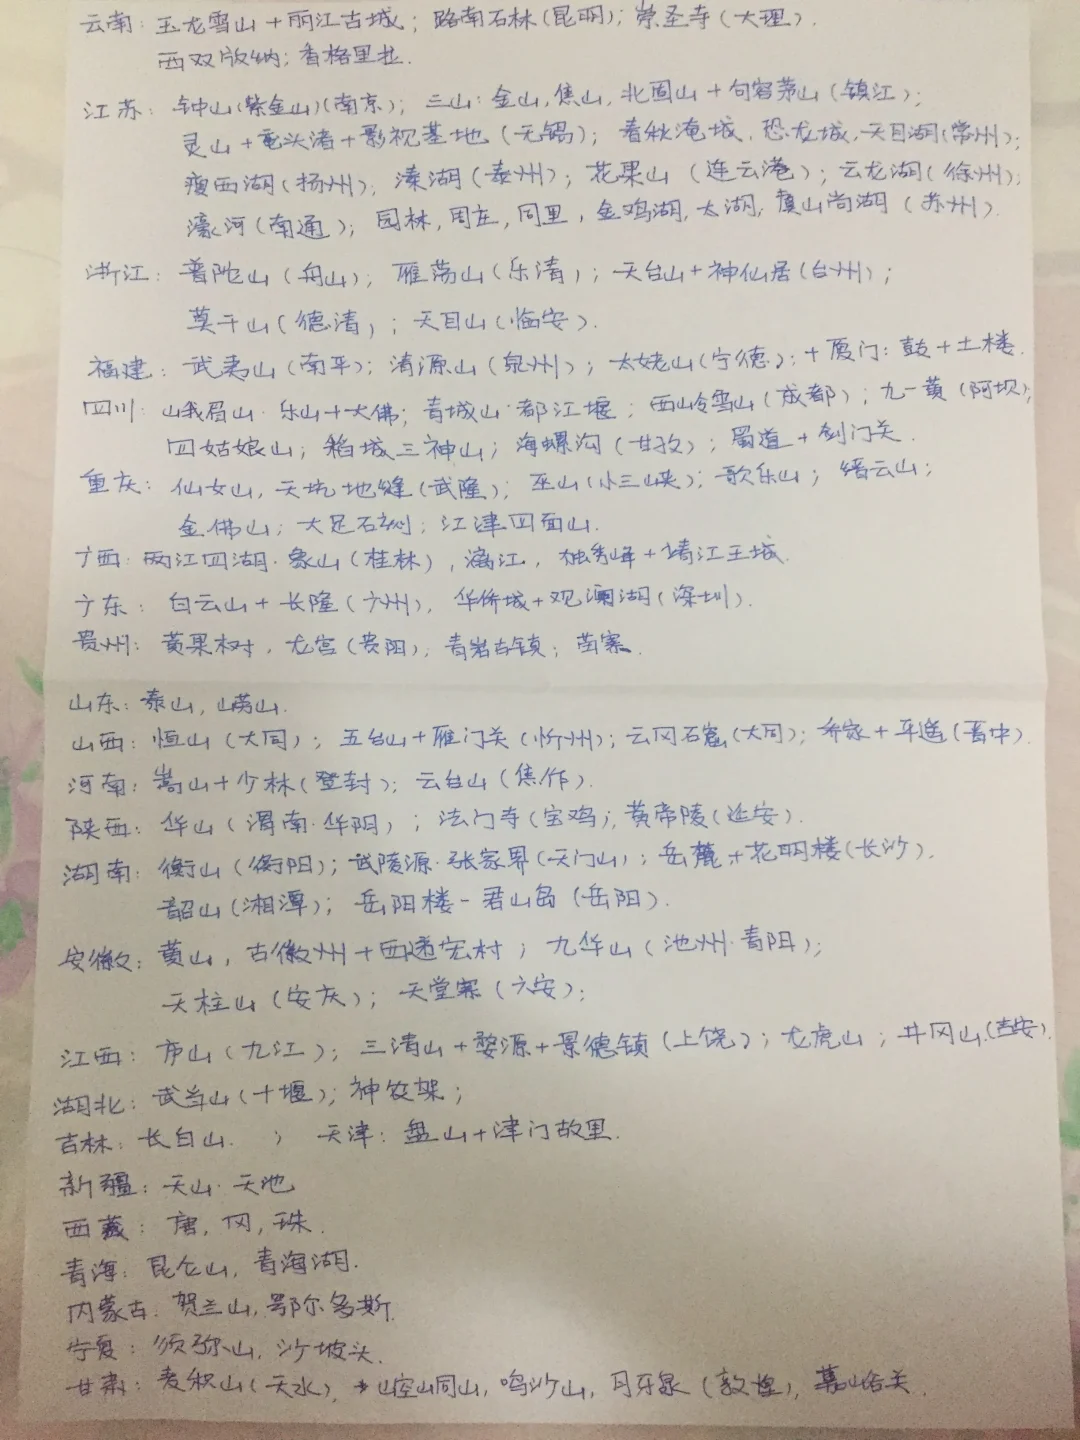 云南：玉龙雪山+丽江古城；路南石林(昆明)；崇圣寺(大理).
西双版纳；香格里拉.
江苏：钟山(紫金山)(南京)；三山：金山,焦山,北固山+句容茅山(镇江)；
灵山+鼋头渚+影视基地(无锡)；春秋淹城,恐龙城,天目湖(常州)；
瘦西湖(扬州)；溱湖(泰州)；花果山(连云港)；云龙湖(徐州)；
濠河(南通)；园林,周庄,同里,金鸡湖,太湖,虞山尚湖(苏州).
浙江：普陀山(舟山)；雁荡山(乐清)；天台山+神仙居(台州)；
莫干山(德清)；天目山(临安).
福建：武夷山(南平)；清源山(泉州)；太姥山(宁德)；+厦门：鼓+土楼.
四川：峨眉山·乐山+大佛；青城山·都江堰；西岭雪山(成都)；九一黄(阿坝)；
四姑娘山；稻城三神山；海螺沟(甘孜)；蜀道+剑门关.
重庆：仙女山,天坑地缝(武隆)；巫山(小三峡)；歌乐山；缙云山；
金佛山；大足石刻；江津四面山.
广西：两江四湖·象山(桂林),漓江,独秀峰+靖江王城.
广东：白云山+长隆(广州),华侨城+观澜湖(深圳).
贵州：黄果树,龙宫(贵阳)；青岩古镇；苗寨.
山东：泰山,崂山.
山西：恒山(大同)；五台山+雁门关(忻州)；云冈石窟(大同)；乔家+平遥(晋中).
河南：嵩山+少林(登封)；云台山(焦作).
陕西：华山(渭南·华阴)；法门寺(宝鸡)；黄帝陵(延安).
湖南：衡山(衡阳)；武陵源·张家界(天门山)；岳麓+花明楼(长沙).
韶山(湘潭)；岳阳楼-君山岛(岳阳).
安徽：黄山,古徽州+西递宏村；九华山(池州·青阳)；
天柱山(安庆)；天堂寨(六安)；
江西：庐山(九江)；三清山+婺源+景德镇(上饶)；龙虎山；井冈山(吉安).
湖北：武当山(十堰)；神农架；
吉林：长白山.；天津：盘山+津门故里.
新疆：天山·天池
西藏：唐,冈,珠.
青海：昆仑山,青海湖.
内蒙古：贺兰山,鄂尔多斯.
宁夏：须弥山,沙坡头.
甘肃：麦积山(天水),崆峒山,鸣沙山,月牙泉(敦煌),嘉峪关.